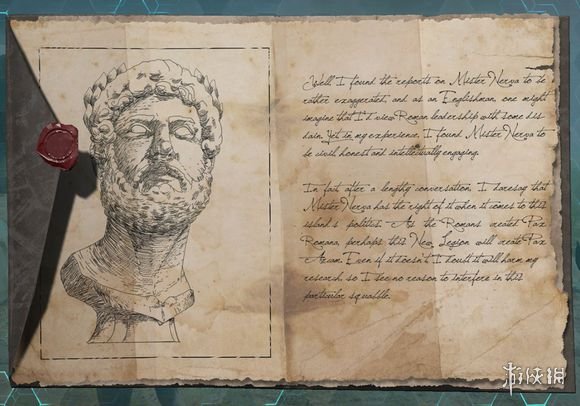 Well I found the reports on Mister Nerva to be
rather exaggerated, and as an Englishman, one might
imagine that I'd view Roman leadership with some dis-
dain. Yet in my experience, I found Mister Nerva to
be civil honest and intellectually engaging.
In fact after a lengthy conversation, I daresay that
Mister Nerva has the right of it when it comes to this
island's politics. As the Romans created Pax
Romana, perhaps this New Legion will create Pax
Arcam. Even if it doesn't, I doubt it will harm my
research, so I see no reason to interfere in this
particular squabble.
游侠网